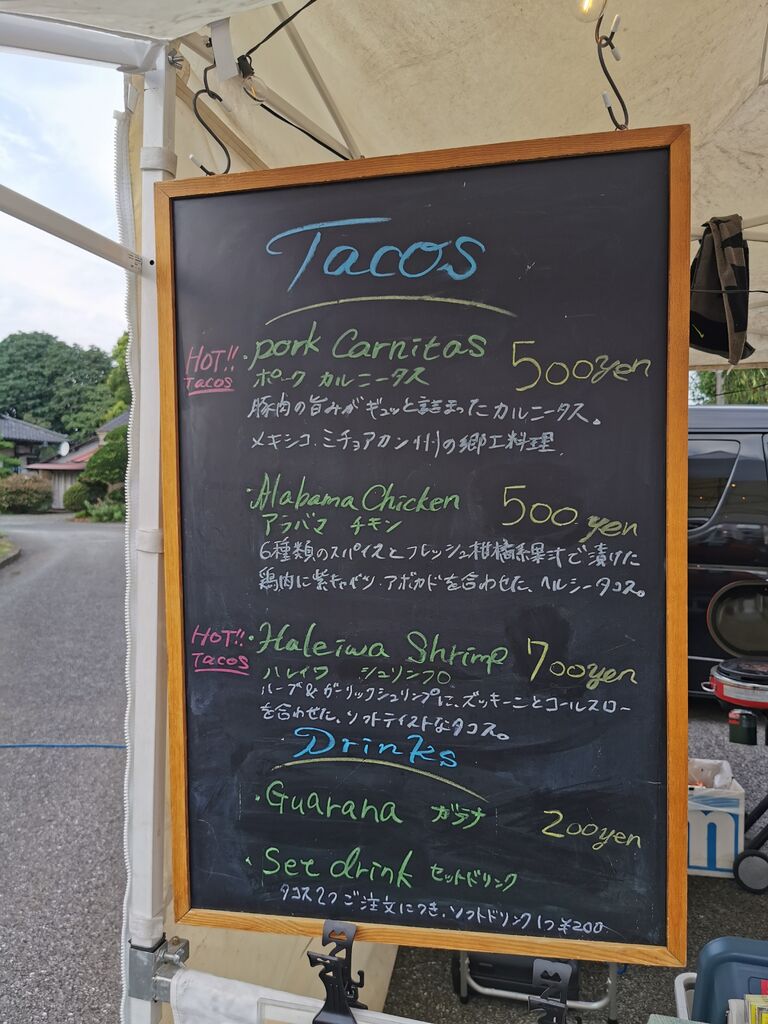 Tacos
HOT!!
Tacos
・pork Carnitas 500yen
ポーク カルニータス
豚肉の旨みがギュッと詰まったカルニータス。
メキシコ、ミチョアカン州の郷土料理、
・Alabama Chicken 500yen
アラバマ チキン
6種類のスパイスとフレッシュ柑橘系果汁で漬けた
鶏肉に紫キャベツ、アボカドを合わせた、ヘルシータコス。
HOT!!
Tacos
・Haleiwa Shrimp 700yen
ハレイワ シュリンプ
ハーブ&ガーリックシュリンプに、ズッキーニとコールスロー
を合わせた、ソフトテイストなタコス。
Drinks
・Guarana ガラナ 200yen
・Set drink セットドリンク
タコス2つご注文につき、ソフトドリンク1つ¥200
m